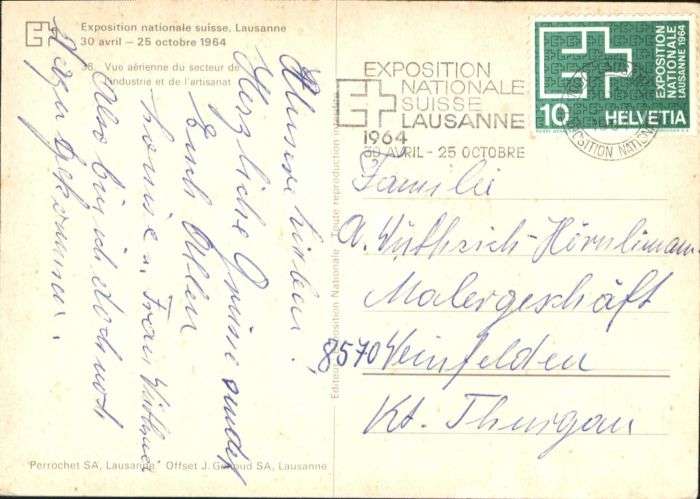 Exposition nationale suisse, Lausanne
30 avril – 25 octobre 1964
36. Vue aérienne du secteur de
l'industrie et de l'artisanat
Lieben!
Herzliche Grüsse sendet
Euch Allen
u. Frau
Also bin ich doch
dazu gekommen.
Perrochet SA, Lausanne Offset J. SA, Lausanne
Exposition Nationale Toute reproduction
EXPOSITION
NATIONALE
SUISSE
LAUSANNE
1964
30 AVRIL - 25 OCTOBRE
EXPOSITION
NATIONALE
LAUSANNE 1964
10 HELVETIA
EXPOSITION NATION
Familie
A. Wüthrich-Hörnlimann
Malergeschäft
8570 Weinfelden
Kt. Thurgau